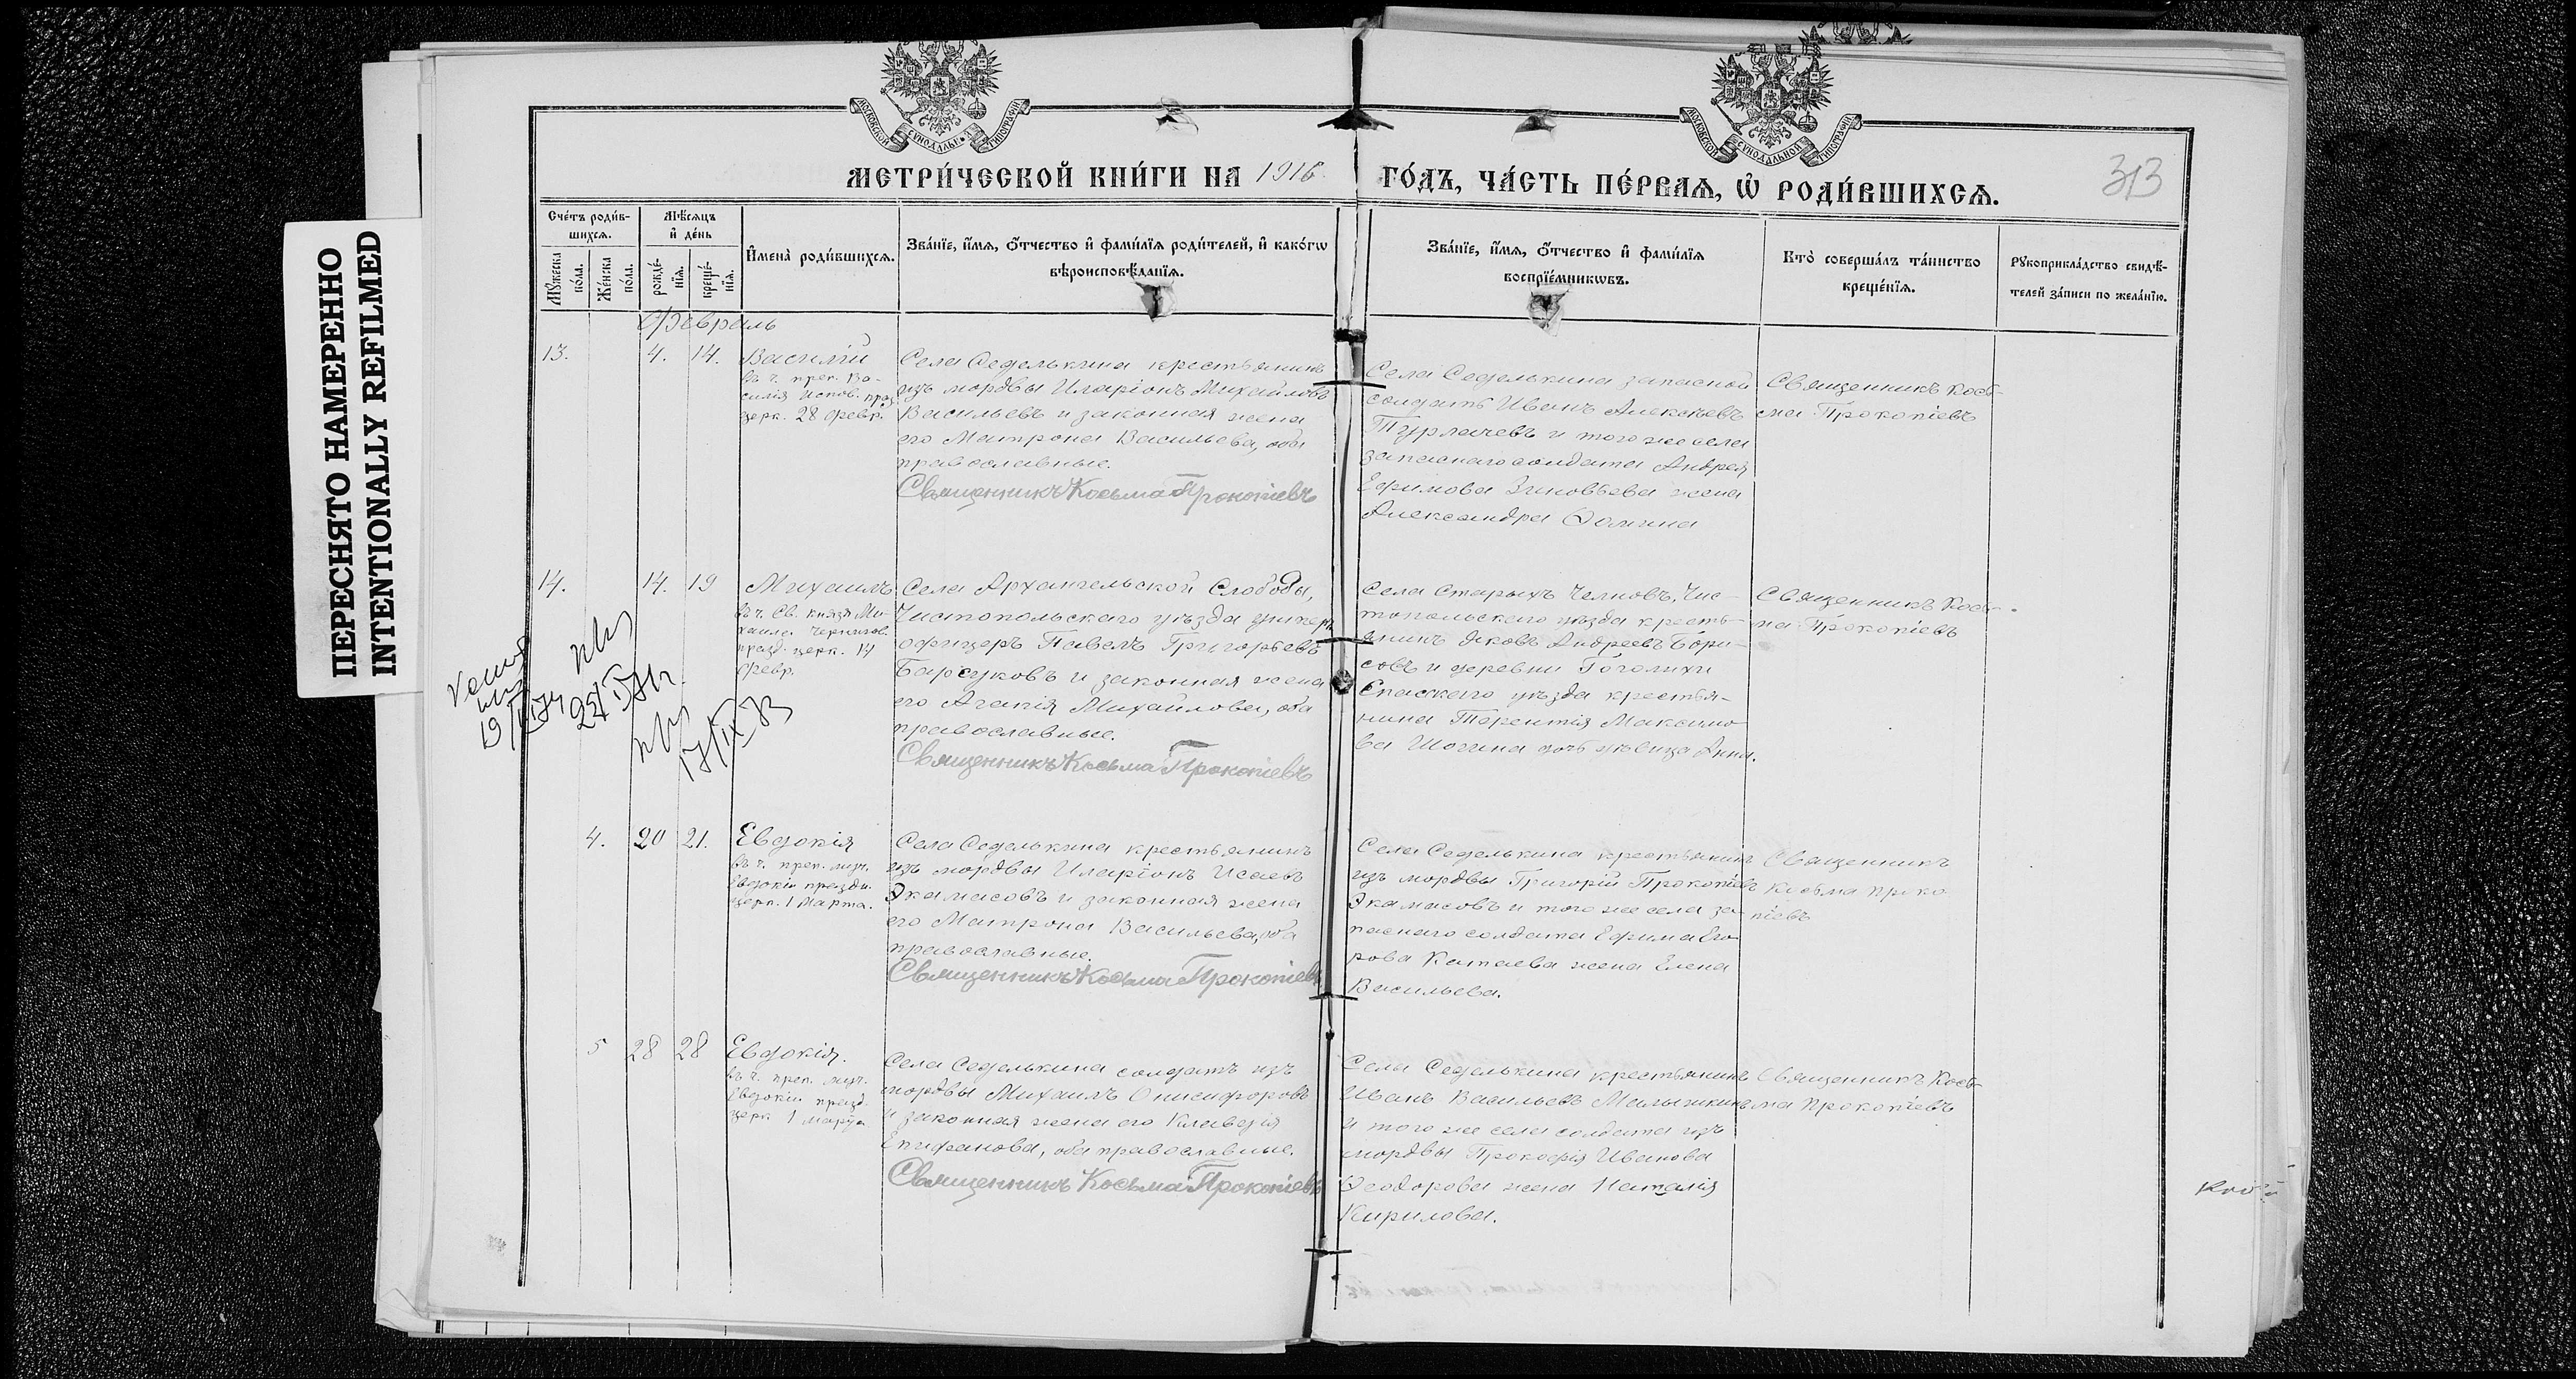 ПЕРЕСНЯТО НАМЕРЕННО
INTENTIONALLY REFILMED
МОСКОВСКОЙ СУНОДАЛЬНОЙ ТИПОГРАФІИ
МОСКОВСКОЙ СУНОДАЛЬНОЙ ТИПОГРАФІИ
МЕТРИ́ЧЕСКОЙ КНИ́ГИ НА 1916 ГО́ДЪ, ЧА́СТЬ ПЕ́РВАѦ, Ѡ РОДИ́ВШИХСѦ.
313
Сче́тъ роди́в-
шихсѧ.
Мꙋ́жеска по́ла.
Же́нска по́ла.
Мѣ́сѧцъ
и҆ де́нь
рожде́-
нїѧ.
креще́-
нїѧ.
И҆мена̀ роди́вшихсѧ.
Зва́нїе, и҆́мѧ, ѻ҆́тчество и҆ фами́лїѧ роди́телей, и҆ како́гѡ
вѣроисповѣ́данїѧ.
Зва́нїе, и҆́мѧ, ѻ҆́тчество и҆ фами́лїѧ
воспрїе́мникѡвъ.
Кто̀ соверша́лъ та́инство
креще́нїѧ.
Рꙋкоприкла́дство свидѣ́-
телей за́писи по жела́нїю.
Февраль
13.
4. 14.
Василій
въ ч. преп. Ва-
силія Испов. праз.
церк. 28 февр.
Села Седелькина крестьянинъ
изъ мордвы Иларіонъ Михайловъ
Васильевъ и законная жена
его Матрона Васильева, оба
православные.
Священникъ Косьма Прокопіевъ
Села Седелькина запасной
солдатъ Иванъ Алексѣевъ
Турлачевъ и того же села
запаснаго солдата Андрея
Ефимова Зиновьева жена
Александра Фомина
Священникъ Кось-
ма Прокопіевъ
14.
14. 19
Михаилъ
въ ч. Св. князя Ми-
хаила Чернигов.
празд. церк. 14
февр.
Села Архангельской Слободы,
Чистопольскаго уѣзда унтеръ
офицеръ Павелъ Григорьевъ
Барсуковъ и законная жена
его Агапія Михайлова, оба
православные.
Священникъ Косьма Прокопіевъ
Села Старыхъ Челновъ, Чис-
топольскаго уѣзда кресть-
янинъ Яковъ Андреевъ Бори-
совъ и деревни Гоголихи
Спасскаго уѣзда крестья-
нина Терентія Максимо
ва Шогина дочь дѣвица Анна.
Священникъ Кось-
ма Прокопіевъ
4.
20 21.
Евдокія
въ ч. преп. муч.
Евдокіи праздн.
церк. 1 Марта.
Села Седелькина крестьянинъ
изъ мордвы Иларіонъ Исаевъ
Экамасовъ и законная жена
его Матрона Васильева, оба
православные.
Священникъ Косьма Прокопіевъ
Села Седелькина крестьянинъ
изъ мордвы Григорій Прокопіевъ
Экамасовъ и того же села за-
паснаго солдата Ефима Его
рова Катаева жена Елена
Васильева.
Священникъ
Косьма Проко
піевъ
5
28 28
Евдокія.
въ ч. преп. муч.
Евдокіи празд.
церк 1 марта
Села Седелькина солдатъ изъ
мордвы Михаилъ Онисифоровъ
и законная жена его Клавдія
Епифанова, оба православные.
Священникъ Косьма Прокопіевъ
Села Седелькина крестьянинъ
Иванъ Васильевъ Малышкинъ
и того же села солдата изъ
мордвы Прокофія Иванова
Феодорова жена Наталія
Кирилова.
Священникъ Кось-
ма Прокопіевъ